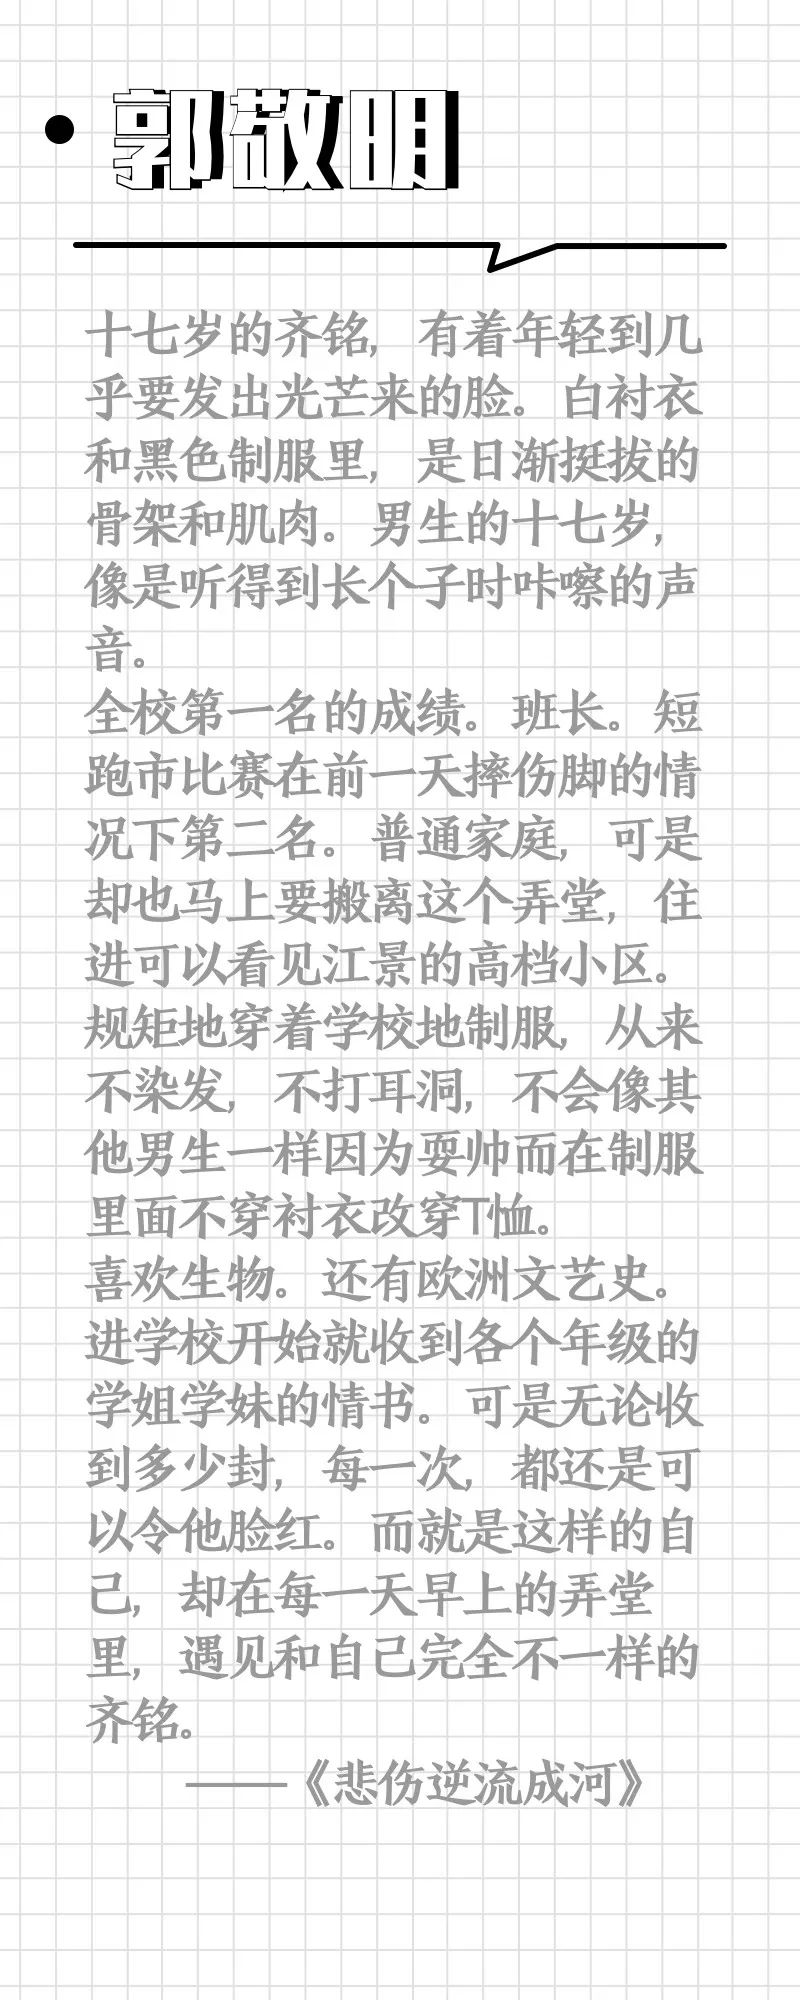 郭敬明
十七岁的齐铭，有着年轻到几
乎要发出光芒来的脸。白衬衣
和黑色制服里，是日渐挺拔的
骨架和肌肉。男生的十七岁，
像是听得到长个子时咔嚓的声
音。
全校第一名的成绩。班长。短
跑市比赛在前一天摔伤脚的情
况下第二名。普通家庭，可是
却也马上要搬离这个弄堂，住
进可以看见江景的高档小区。
规矩地穿着学校地制服，从来
不染发，不打耳洞，不会像其
他男生一样因为耍帅而在制服
里面不穿衬衣改穿T恤。
喜欢生物。还有欧洲文艺史。
进学校开始就收到各个年级的
学姐学妹的情书。可是无论收
到多少封，每一次，都还是可
以令他脸红。而就是这样的自
己，却在每一天早上的弄堂
里，遇见和自己完全不一样的
齐铭。
——《悲伤逆流成河》